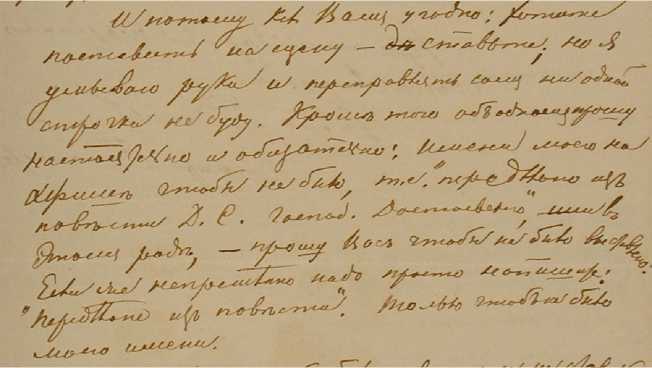 И потому какъ Вамъ угодно: хотите
поставить на сцену — ставьте, но я
умываю руки и переправлять самъ ни одной
строчки не буду. Кромѣ того объ одномъ прошу
настоятельно и обязательно: имени моего на
афишѣ чтобы не было, т. е. "передѣлано изъ
повѣсти Д. С. господ. Достоевскаго", или въ
этомъ родѣ, — прошу Васъ чтобы не было выставлено.
Если же непремѣнно надо просто напишите:
"Передѣлано изъ повѣсти". Только чтобъ не было
моего имени.